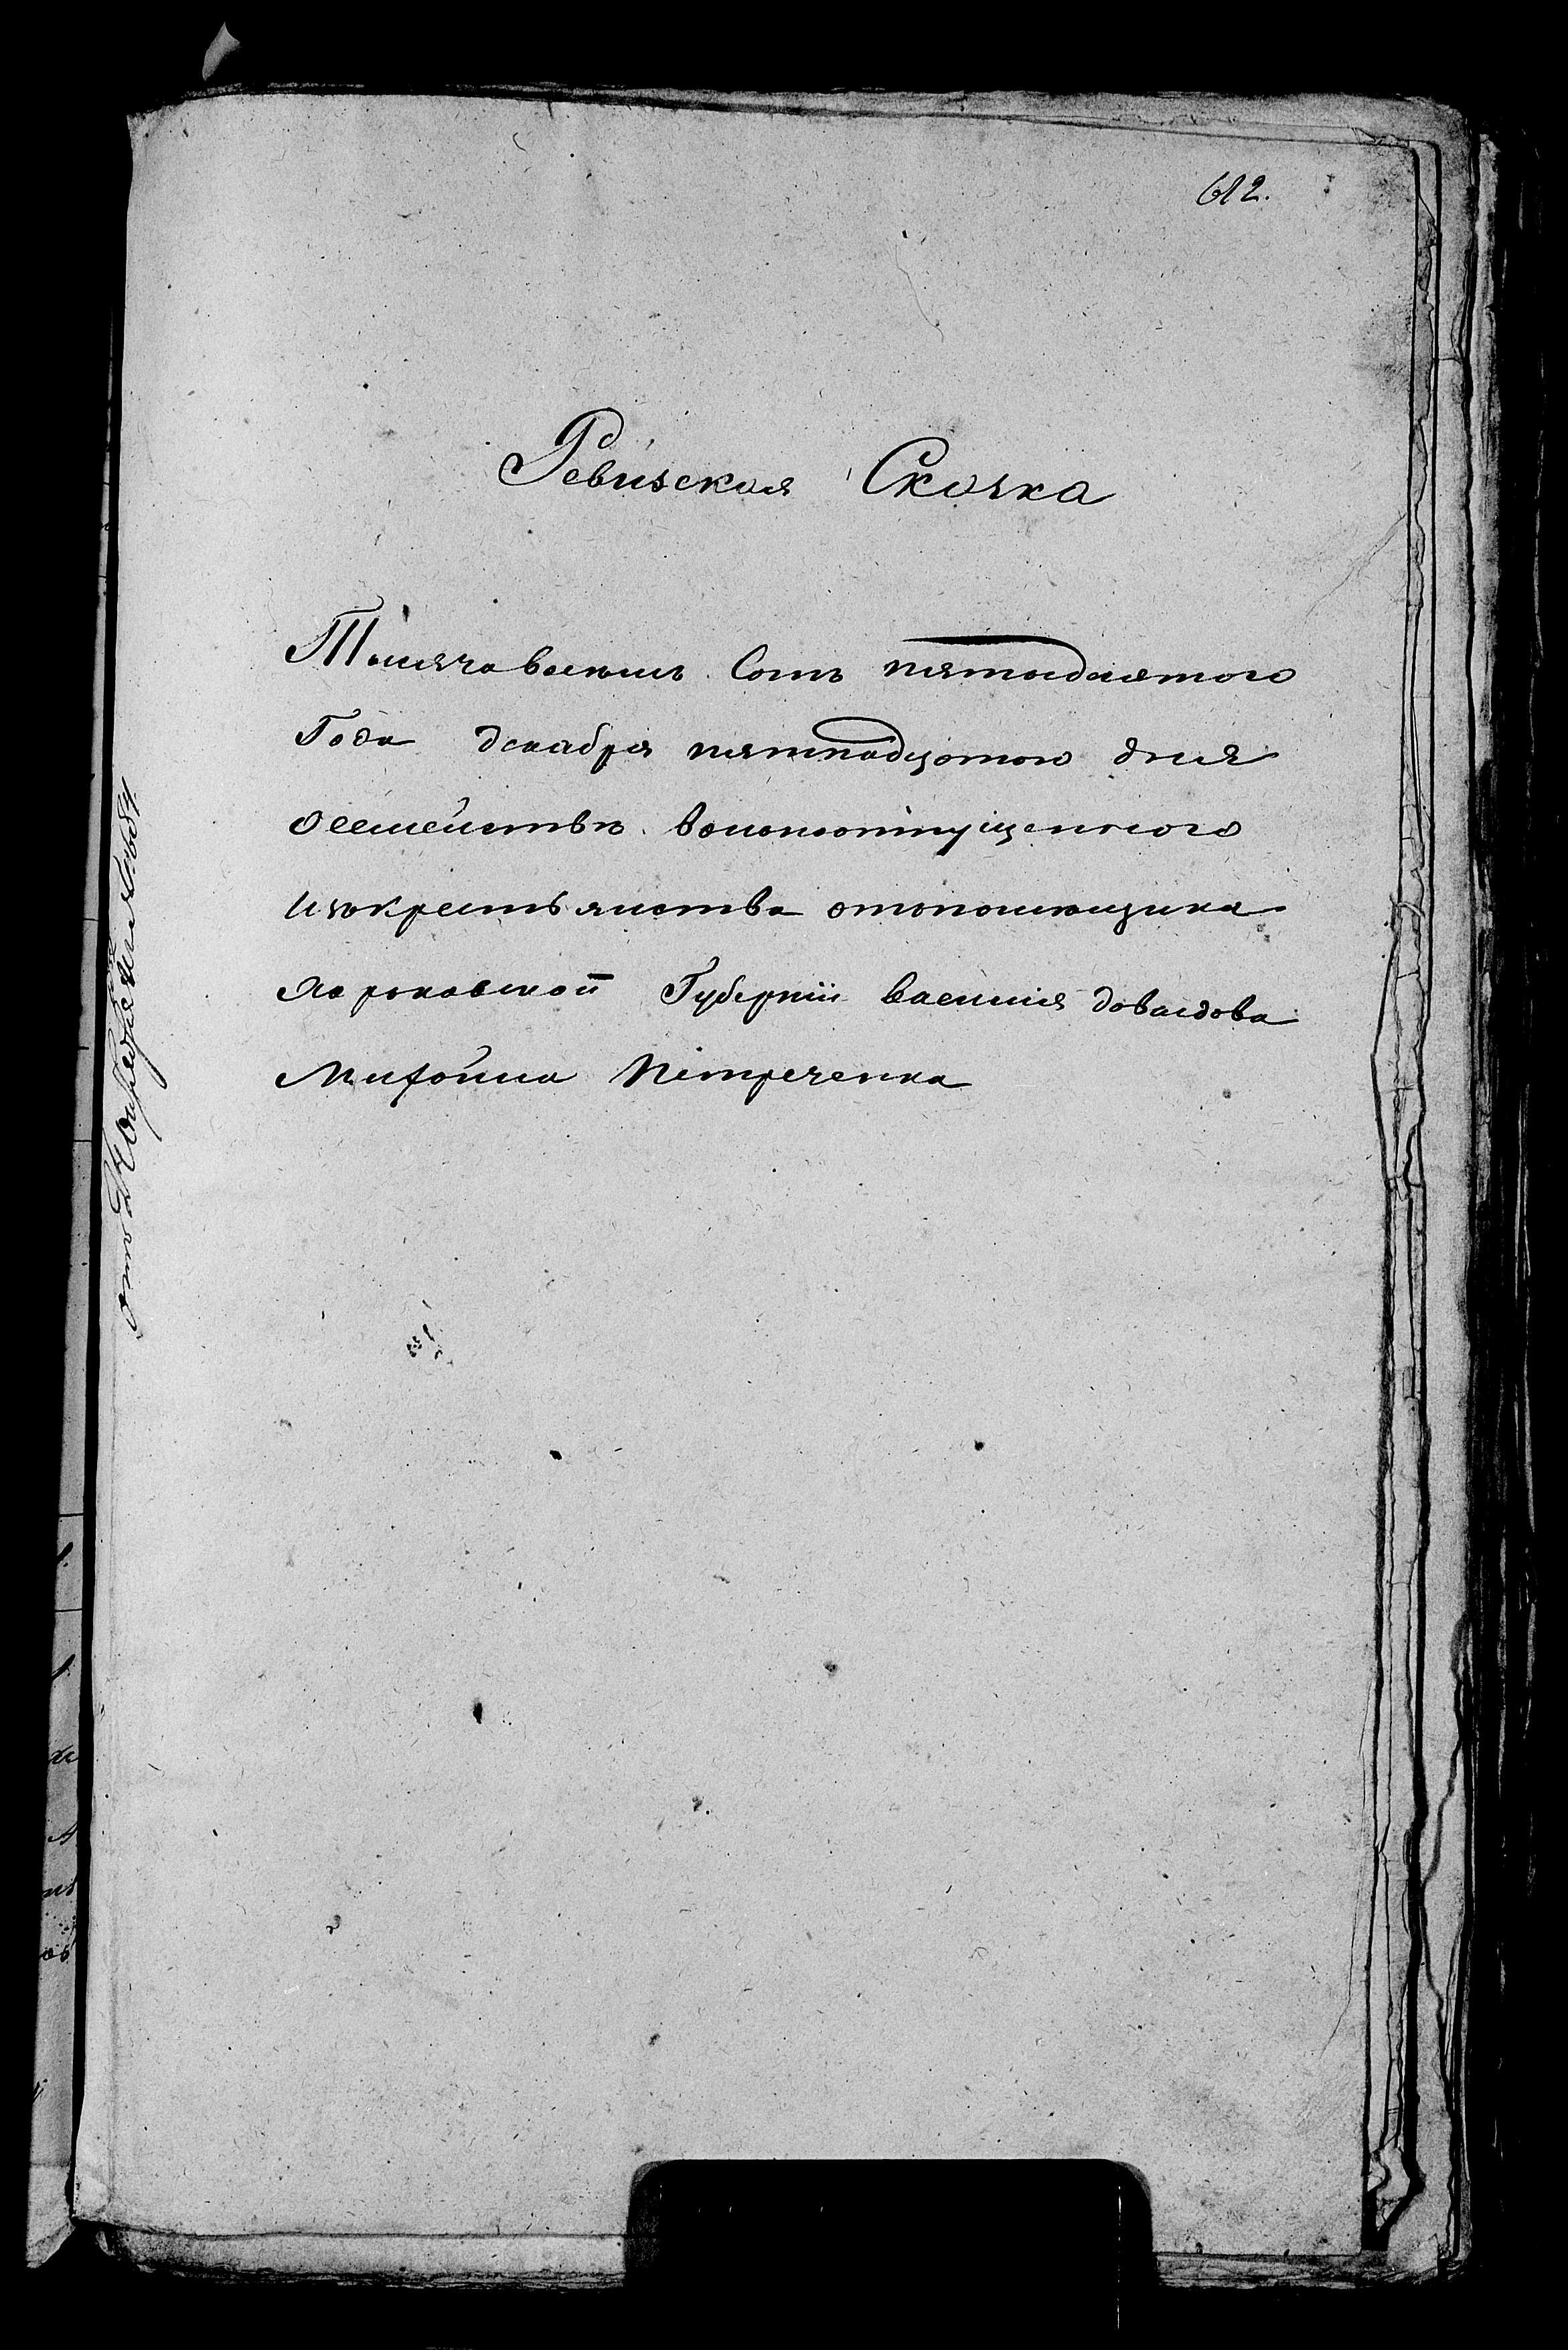 612.
Ревизская Сказка
Тысяча восемь Сотъ пятьдесятого
Года декабря пятнадцатого дня
Осемействѣ вольноотпущенного
изъкрестьянства отъпомещика
харьковской Губерніи василия довыдова
Митофана Петреченка